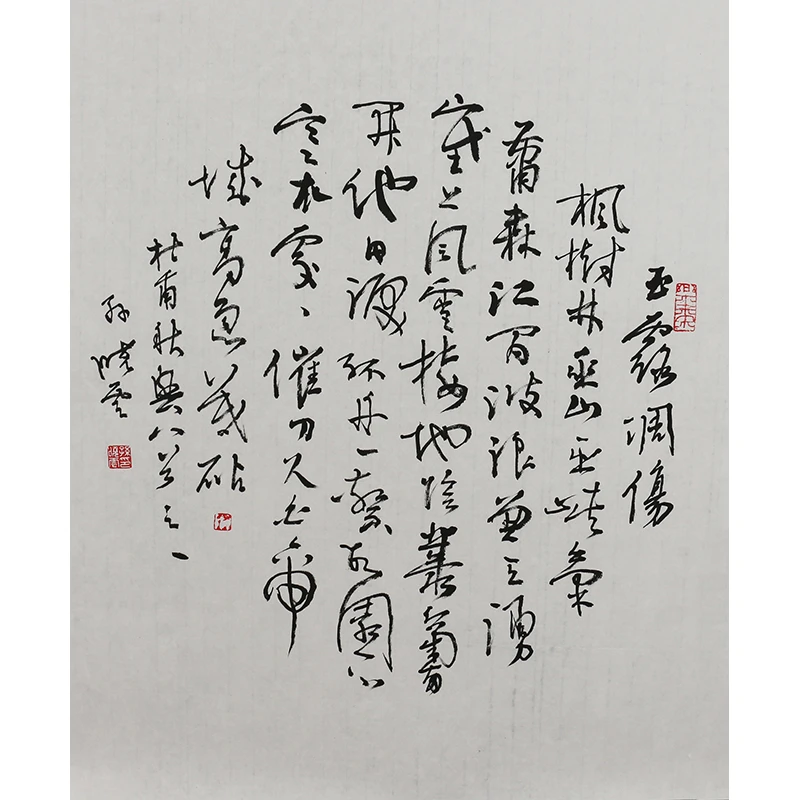 玉露凋傷
楓樹林巫山巫峽氣
蕭森江間波浪兼天湧
塞上風雲接地陰叢菊兩
開他日淚孤舟一繫故園心
寒衣處、催刀尺白帝
城高急暮砧
杜甫秋興八首之一
孫曉雲